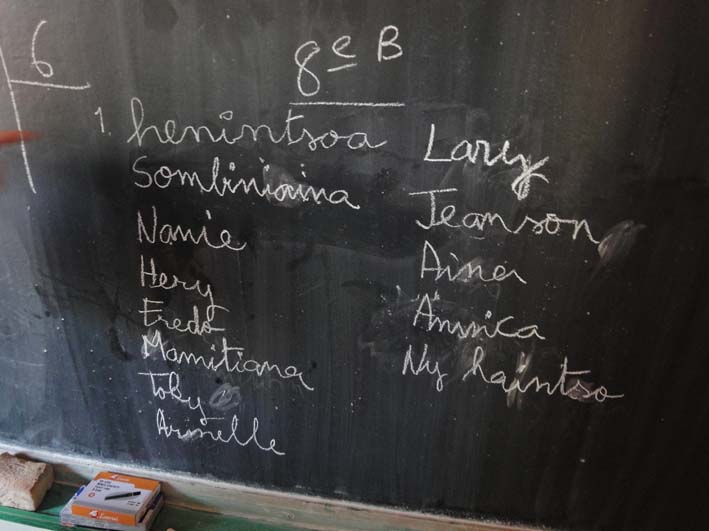 6
8e B
1. henintsoa
Sombiniaina
Nanie
Hery
Fredo
Mamitiana
Toby
Armelle
Lary
Jeanson
Aina
Annica
Ny haintso